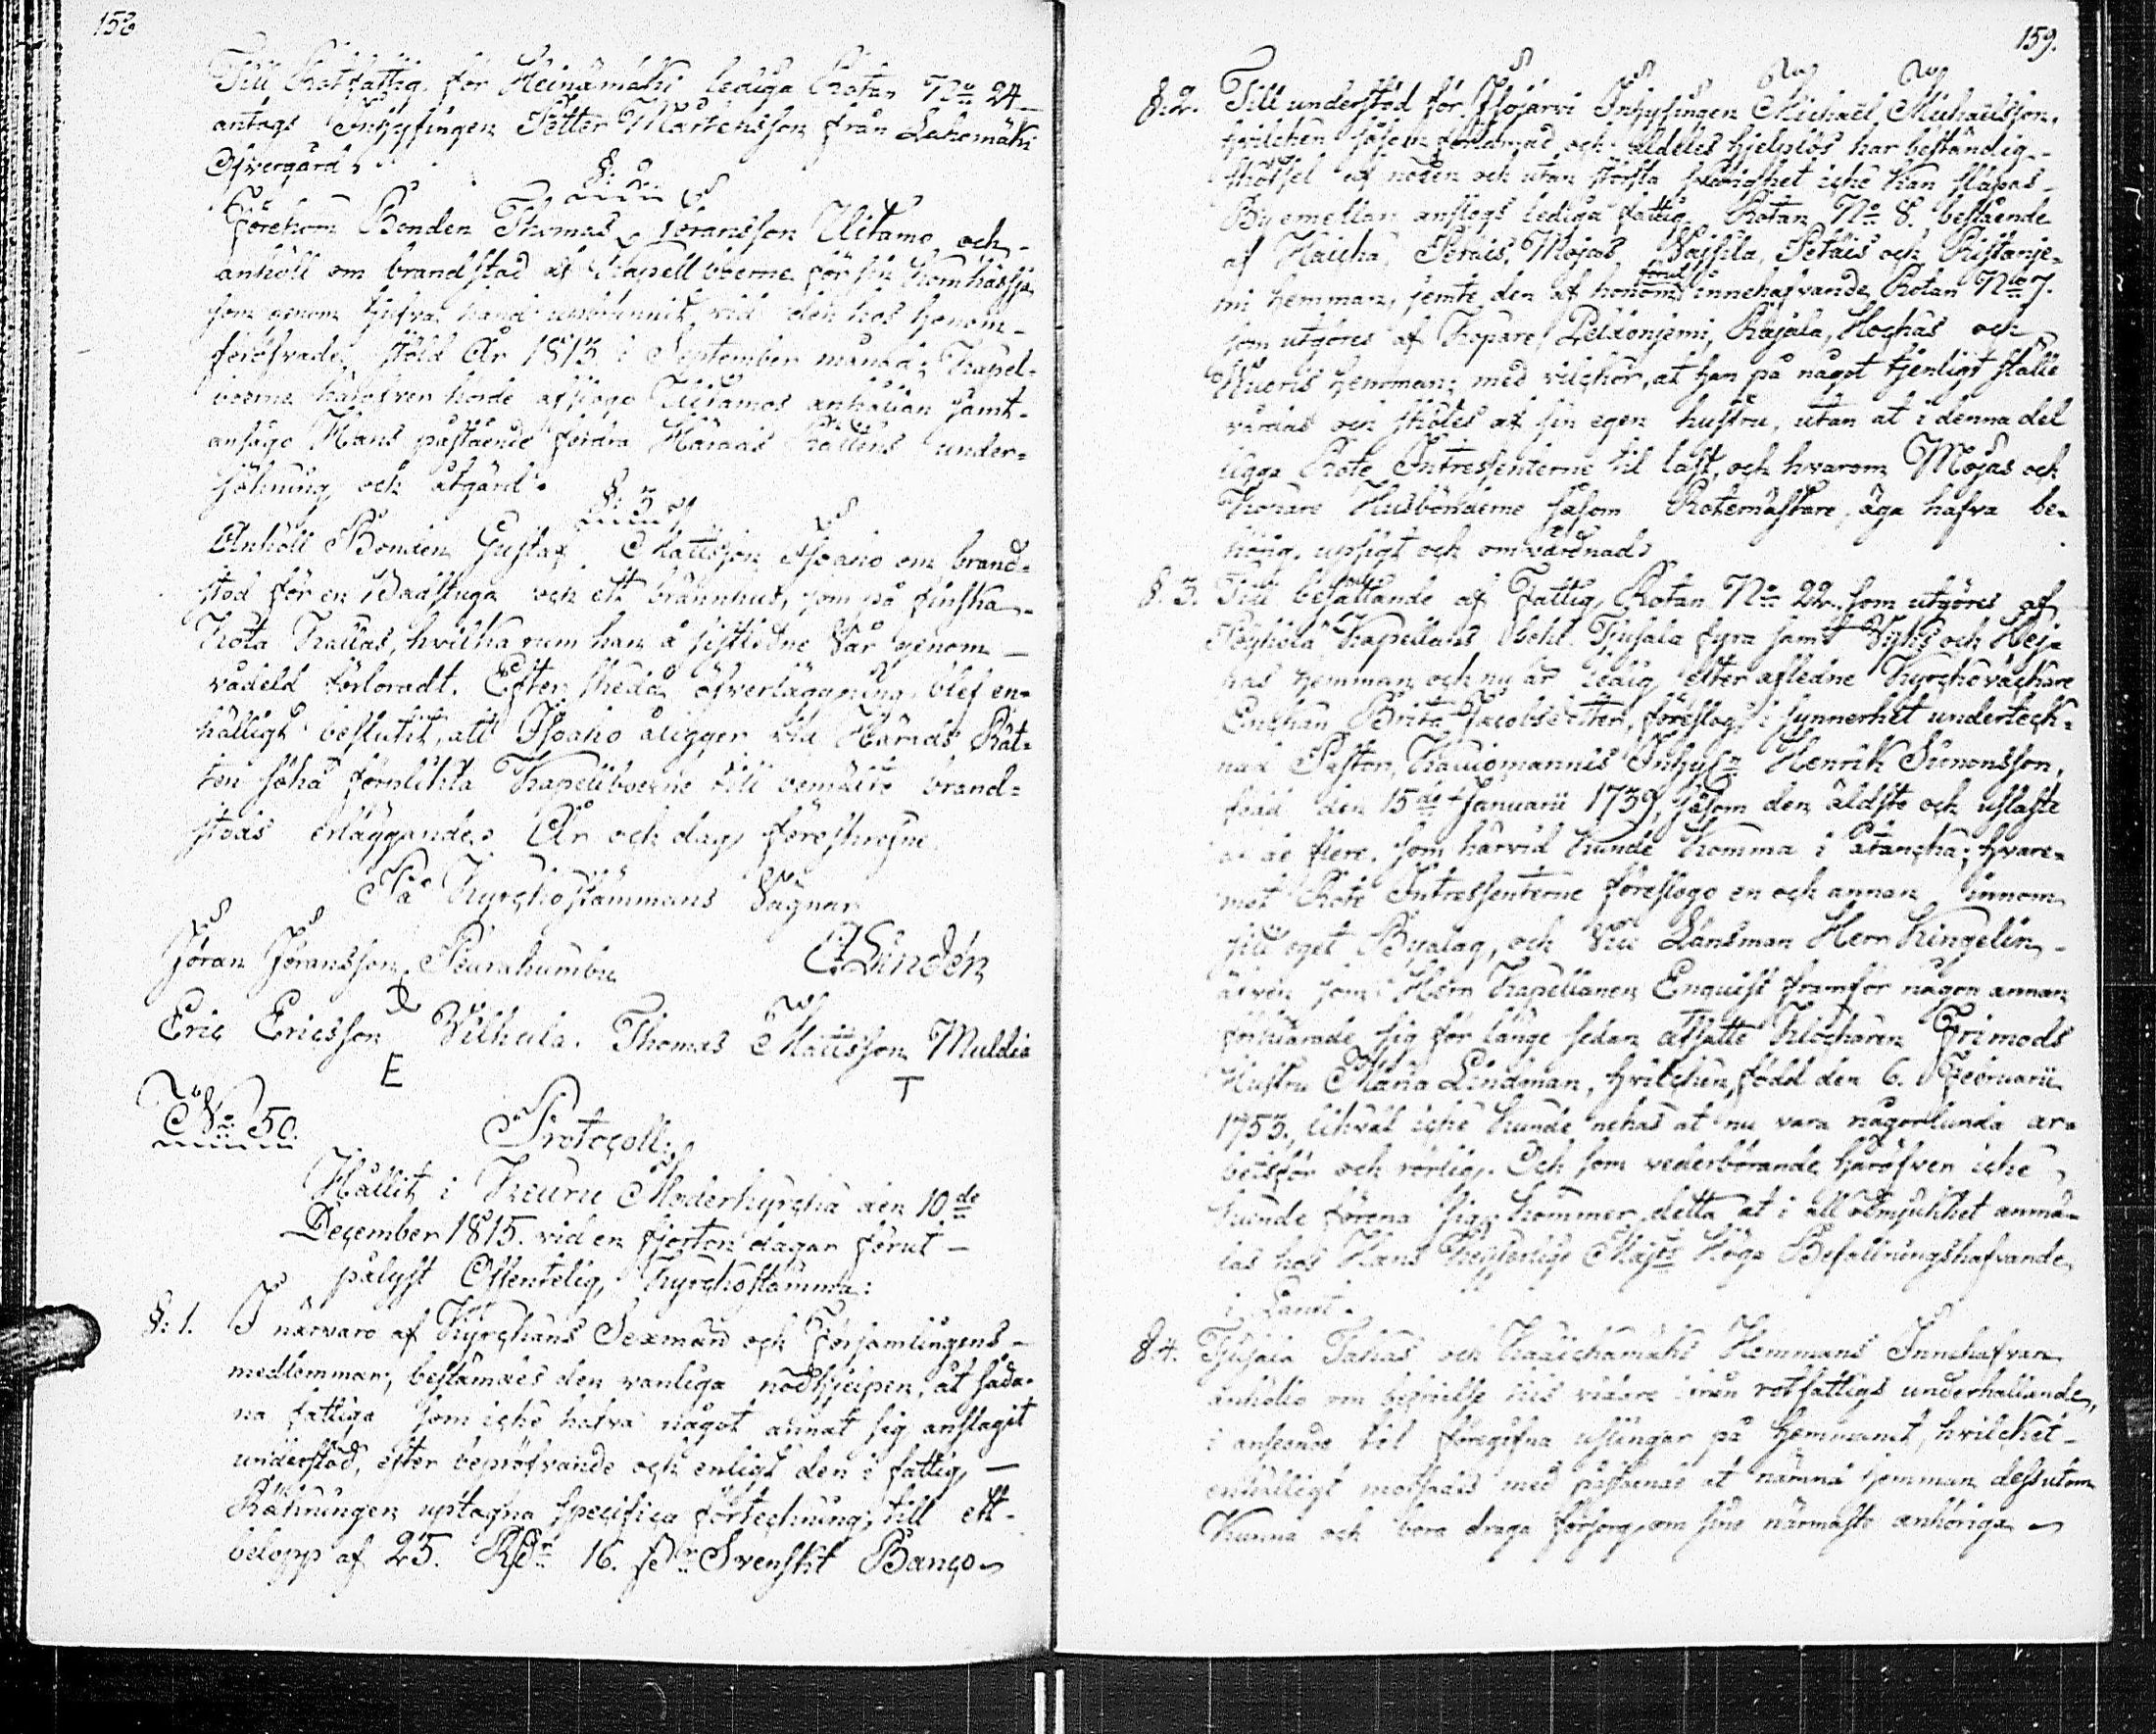 158
Till Rotfattig för Heinämäki lediga Rotan No 24
antogs Inhysingen Petter Mårtensson från Lahomäki
Öfvergård.
§. 2.
Förekom Bonden Thomas Göransson Ulitamo och
anhöll om brandstod af Kapellboerne för sin Kornhässja
som genom tjufva hand upbrunnit vid den hos honom
föröfvade stöld År 1813 i September månad; Kapel-
boerne häröfver hörde afslogo Ulitamos anhållan samt
ansågo Hans påstående fordra Härads Rättens under-
sökning och åtgärd.
§. 3
Anhöll Bonden Gustaf Mattsson Isoaho om brand-
stod för en Badstuga och ett brännhus, som på finska
Kota kallas, hvilka rum han å sistledne Vår genom
vådeld förloradt. Efter skedd öfverläggning blef en-
hälligt beslutit, att Isoaho åligger vid Härads Rät-
ten söka förplikta Kapellboerne till bemälte brand-
stods erläggande. År och dag föreskrefne.
På Kyrckostämmans Vägnar
Jöran Jöransson Peurakumbu
C. Lindén
Eric Ericsson Vilkula. Thomas Mattsson Muldia
E T
No 50.
Protocoll,
Hållit i Keuru Moderkyrcka den 10de
December 1815. vid en fjorton dagar förut
pålyst Offentelig Kyrckostämma:
§. 1. I närvaro af Kyrckans Sexmän och Församlingens
medlemmar, bestämdes den vanliga nödhjelpen, åt såda-
na fattiga som icke hafva något annat sig anslagit
understöd, efter bepröfvande och enligt den i fattig
Räkningen uptagna specifica förteckning, till ett
belopp af 25. Rdr 16. s. Svenskt Banco
159.
§. 2. Till understöd för Ilojärvi Inhysingen Michaël Michaëlsson,
hvilcken såsom förlamad och aldeles hjelplös har beständig
skötsel af nöden och utan största svårighet icke kan släpas
Byemellan anslogs lediga fattig Rotan No 8. bestående
af Haicka, Perais, Mojas, Vaissila, Petäis och Ristanje-
mi hemman, jemte den af honom förut innehafvande Rotan No 7.
som utgöres af Kopare, Pelxonjemi, Rajala, Hockas och
Hueris hemman; med vilckor, at han på något tjenligt ställe
vårdas och skötes af sin egen hustru, utan at i denna del
ligga Rote Intressenterne til last, och hvarom Mojas och
Kopare Husbönderne såsom Rotemästare, äga hafva be-
hörig upsigt och omvårdnad.
§. 3. Till besättande af Fattig Rotan No 22. som utgöres af
Pöyhölä Kapellans Bohl. Tjusala fyra samt Vyhs och Heja
has hemman och nu är ledig efter afledne Kyrckoväcktare
Enckan Brita Jacobsdotter, föreslog i synnerhet underteck-
nad Pastor, Kaliomannis Inhys. Henrik Simonsson,
född den 15de Januarii 1739, såsom den äldste och uslaste
af de flere, som härvid kunde komma i åtancka; hvare-
mot Rote Intressenterne föreslogo en och annan innom
sitt eget Byalag, och Vice Länsman Herr Ringelin
äfven som Herr Kapellanen Enquist framför någon annan
förklarade sig för länge sedan afsatte Klockaren Frimods
Hustru Maria Lindman, hvilcken född den 6. Februarii
1753, likväl icke kunde nekas at nu vara någorlunda ar-
betsför och rörlig. Och som vederbörande häröfver icke
kunde förena sig, kommer detta at i all ödmjukhet anmä-
las hos Hans Kejserlige Majts Höga Befallningshafvande
i Länet.
§. 4. Tjusala Takas och Kaaickamäki Hemmans Innehafvare
anhöllo om befrielse tils vidare från rotfattigs underhållande,
i anseende til föregifna uslingar på hemmanet, hvilcket
enhälligt motsades med påstående at nämnde hemman dessutom
kunna och böra draga försorg om sine närmaste anhöriga